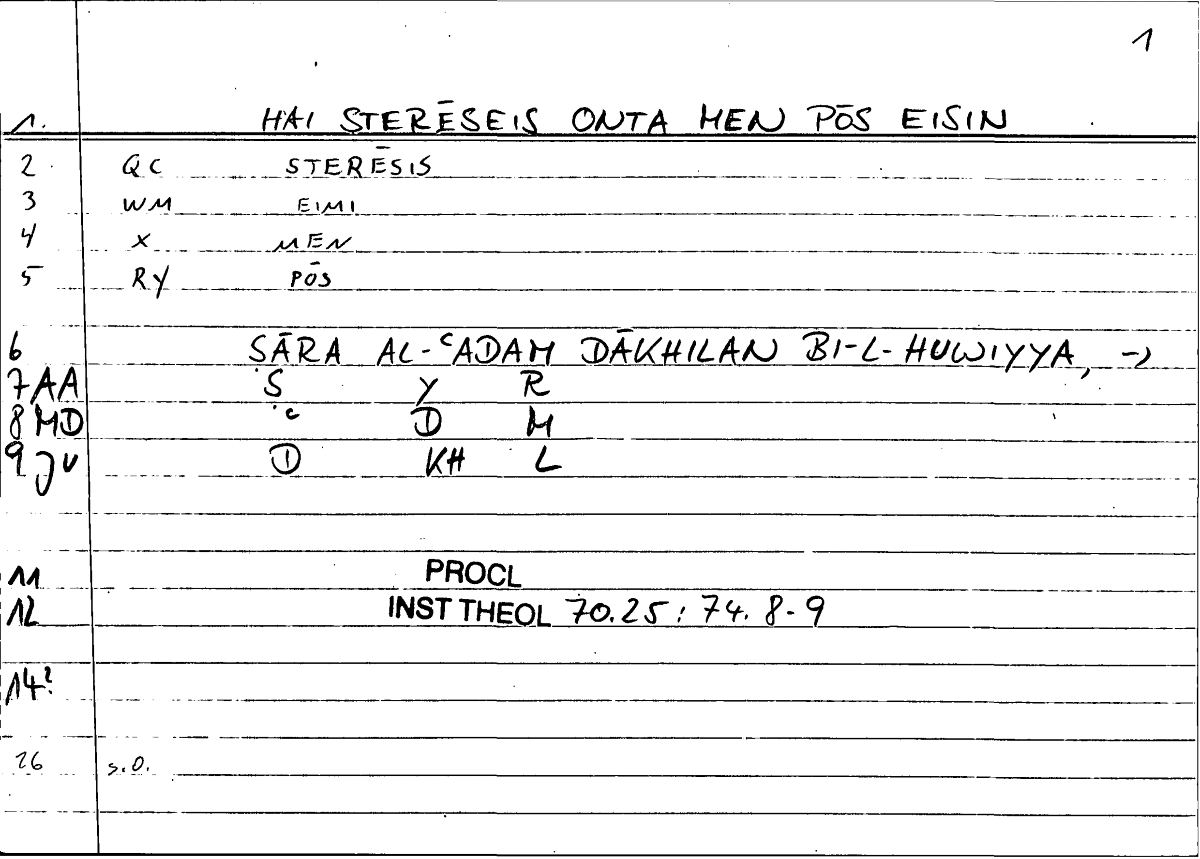 1
1. HAI STERĒSEIS ONTA MEN PŌS EISIN
2 QC STERĒSIS
3 WM EIMI
4 X MEN
5 RY PŌS
6 ṢĀRA AL-ʿADAM DĀKHILAN BI-L-HUWIYYA, →
7 AA Ṣ Y R
8 MD ʿ D M
9 JV D KH L
11 PROCL
12 INST THEOL 70.25 : 74. 8-9
14?
26 s.O.